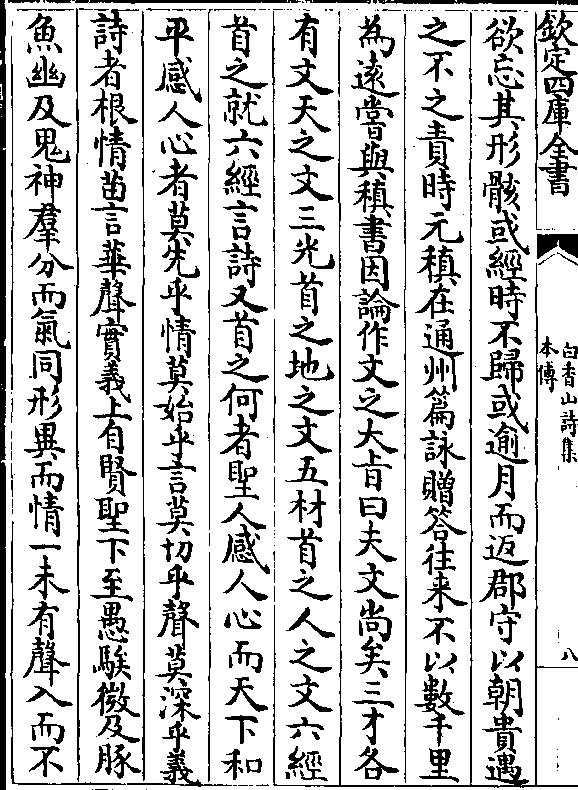 欽定四庫全書
白香山詩集
本傳
八
欲忘其形骸或經時不歸或逾月而返郡守以朝貴遇
之不之責時元稹在通州篇詠贈答往来不以數千里
為遠嘗與稹書因論作文之大㫖曰夫文尚矣三才各
有文天之文三光首之地之文五材首之人之文六經
首之就六經言詩又首之何者聖人感人心而天下和
平感人心者莫先乎情莫始乎言莫切乎聲莫深乎義
詩者根情苗言華聲實義上自賢聖下至愚騃微及豚
魚幽及鬼神羣分而氣同形異而情一未有聲入而不